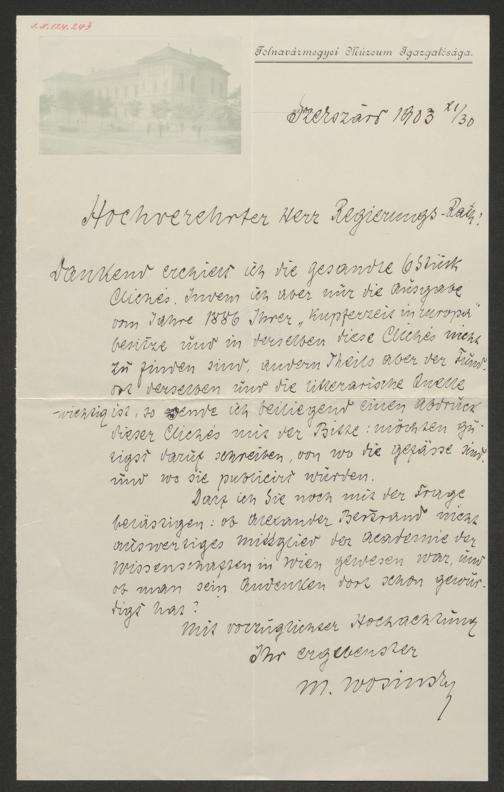 I.N. 124.243
Tolnavármegyei Múzeum Igazgatósága.
Szerszárd 1903 XI/30
Hochverehrter Herr Regierungs-Rath!
Dankend erhielt ich die gesandte 6 Stück
Clichés. Indem ich aber nur die Ausgabe
vom Jahre 1886 Ihrer „Kupferzeit in Europa"
besitze und in derselben diese Clichés nicht
zu finden sind, andern Theils aber der Fund-
ort derselben und die litterarische Quelle
wichtig ist, so sende ich beiliegend einen Abdruck
dieser Clichés mit der Bitte: möchten gü-
tigst darauf schreiben, von wo die gefässe sind
und wo sie publicirt wurden.
Darf ich Sie noch mit der Frage
belästigen: ob Alexander Bertrand nicht
auswertiges Mittglied der Academie der
Wissenschaften in Wien gewesen war, und
ob man sein Andenken dort schon gewür-
digt hat?
Mit vorzüglichster Hochachtung
Ihr ergebenster
M. Wosinsky